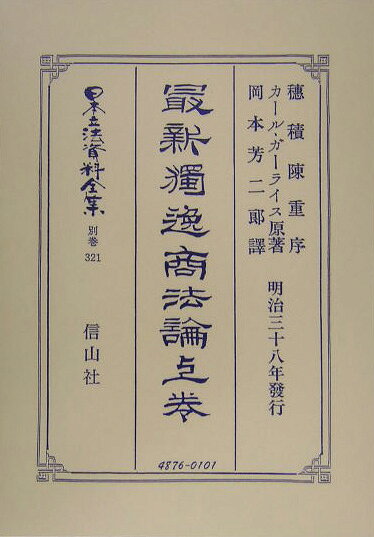 穂積陳重序
カール・ガーライス原著
岡本芳二郎譯
明治三十八年發行
最新獨逸商法論上卷
日本立法資料全集
別巻
321
信山社
4876-0101